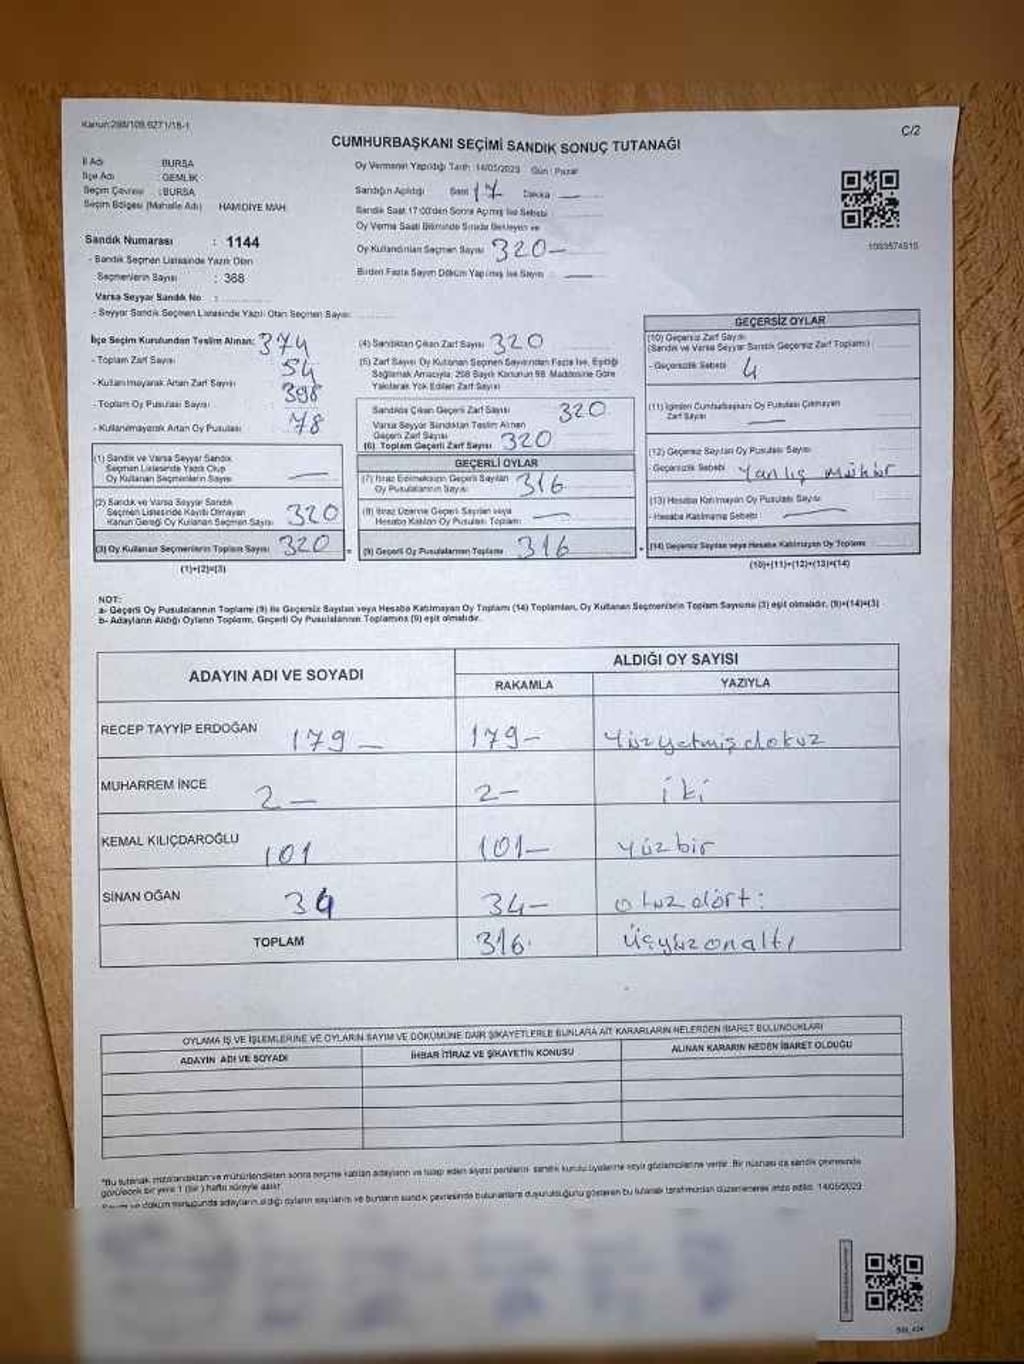 Kanun:298/109,6271/18-1
C/2
CUMHURBAŞKANI SEÇİMİ SANDIK SONUÇ TUTANAĞI
İl Adı : BURSA
İlçe Adı : GEMLİK
Seçim Çevresi : BURSA
Seçim Bölgesi (Mahalle Adı) HAMIDIYE MAH.
Sandık Numarası : 1144
- Sandık Seçmen Listesinde Yazılı Olan
Seçmenlerin Sayısı : 368
Varsa Seyyar Sandık No :
- Seyyar Sandık Seçmen Listesinde Yazılı Olan Seçmen Sayısı
Oy Vermenin Yapıldığı Tarih : 14/05/2023 Gün : Pazar
Sandığın Açıldığı Saat 17 Dakika —
Sandık Saat 17:00'den Sonra Açılmış İse Sebebi
Oy Verme Saati Bitiminde Sırada Bekleyen ve
Oy Kullandırılan Seçmen Sayısı 320-
Birden Fazla Sayım Döküm Yapılmış İse Sayısı —
1093574515
İlçe Seçim Kurulundan Teslim Alınan: 374
- Toplam Zarf Sayısı 54
- Kullanılmayarak Artan Zarf Sayısı 398
- Toplam Oy Pusulası Sayısı 78
- Kullanılmayarak Artan Oy Pusulası
(1) Sandık ve Varsa Seyyar Sandık
Seçmen Listesinde Yazılı Olup
Oy Kullanan Seçmenlerin Sayısı —
(2) Sandık ve Varsa Seyyar Sandık
Seçmen Listesinde Kayıtlı Olmayan
Kanun Gereği Oy Kullanan Seçmen Sayısı 320
(3) Oy Kullanan Seçmenlerin Toplam Sayısı 320
(1)+(2)=(3)
(4) Sandıktan Çıkan Zarf Sayısı 320
(5) Zarf Sayısı Oy Kullanan Seçmen Sayısından Fazla İse, Eşitliği
Sağlamak Amacıyla, 298 Sayılı Kanunun 98. Maddesine Göre
Yakılarak Yok Edilen Zarf Sayısı
Sandıkta Çıkan Geçerli Zarf Sayısı 320
Varsa Seyyar Sandıktan Teslim Alınan
Geçerli Zarf Sayısı
(6) Toplam Geçerli Zarf Sayısı 320
GEÇERLİ OYLAR
(7) İtiraz Edilmeksizin Geçerli Sayılan
Oy Pusulalarının Sayısı 316
(8) İtiraz Üzerine Geçerli Sayılan veya
Hesaba Katılan Oy Pusulası Toplamı —
(9) Geçerli Oy Pusulalarının Toplamı 316
GEÇERSİZ OYLAR
(10) Geçersiz Zarf Sayısı
(Sandık ve Varsa Seyyar Sandık Geçersiz Zarf Toplamı)
- Geçersizlik Sebebi 4
(11) İçinden Cumhurbaşkanı Oy Pusulası Çıkmayan
Zarf Sayısı —
(12) Geçersiz Sayılan Oy Pusulası Sayısı
- Geçersizlik Sebebi Yanlış mühür
(13) Hesaba Katılmayan Oy Pusulası Sayısı
- Hesaba Katılmama Sebebi —
(14) Geçersiz Sayılan veya Hesaba Katılmayan Oy Toplamı
(10)+(11)+(12)+(13)=(14)
NOT:
a- Geçerli Oy Pusulalarının Toplamı (9) ile Geçersiz Sayılan veya Hesaba Katılmayan Oy Toplamı (14) Toplamları, Oy Kullanan Seçmenlerin Toplam Sayısına (3) eşit olmalıdır. (9)+(14)=(3)
b- Adayların Aldığı Oyların Toplamı, Geçerli Oy Pusulalarının Toplamına (9) eşit olmalıdır.
ADAYIN ADI VE SOYADI
ALDIĞI OY SAYISI
RAKAMLA YAZIYLA
RECEP TAYYİP ERDOĞAN 179- 179- Yüzyetmişdokuz
MUHARREM İNCE 2- 2- iki
KEMAL KILIÇDAROĞLU 101 101- yüzbir
SİNAN OĞAN 34 34- otuzdört:
TOPLAM 316 üçyüzonaltı
OYLAMA İŞ VE İŞLEMLERİNE VE OYLARIN SAYIM VE DÖKÜMÜNE DAİR ŞİKAYETLERLE BUNLARA AİT KARARLARIN NELERDEN İBARET BULUNDUKLARI
ADAYIN ADI VE SOYADI İHBAR İTİRAZ VE ŞİKAYETİN KONUSU ALINAN KARARIN NEDEN İBARET OLDUĞU
*Bu tutanak, imzalandıktan ve mühürlendikten sonra seçime katılan adayların ve talep eden siyasi partilerin sandık kurulu üyelerine veya gözlemcilerine verilir. Bir nüshası da sandık çevresinde
görülecek bir yere 1 (bir) hafta süreyle asılır.
Sayım ve döküm sonucunda adayların aldığı oyların sayılarını ve bunların sandık çevresinde bulunanlara duyurulduğunu gösteren bu tutanak tarafımızdan düzenlenerek imza edildi. 14/05/2023